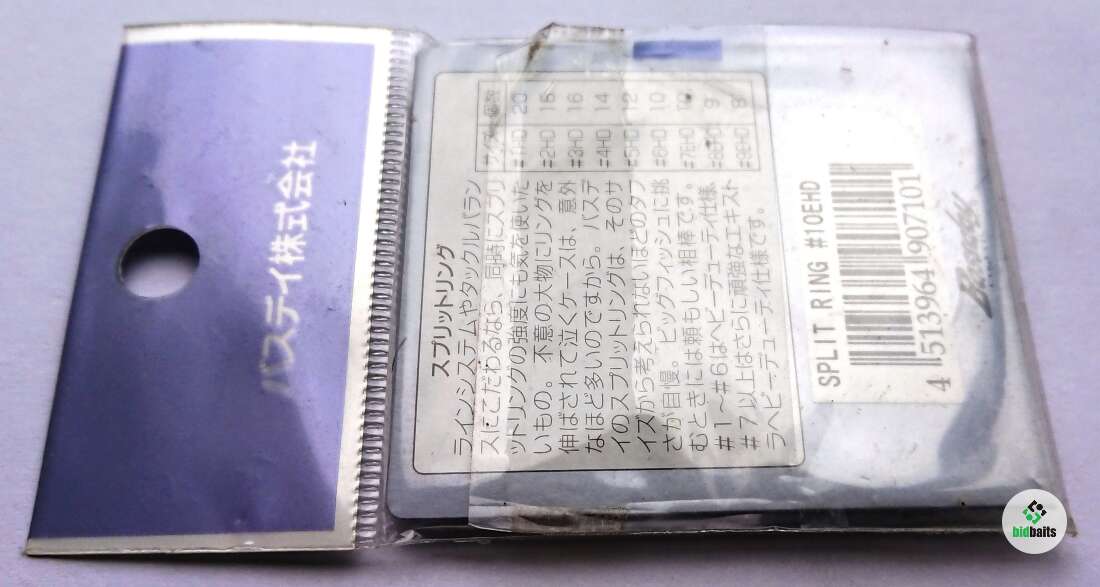 バスディ株式会社
スプリットリング
ラインシステムやタックルバラン
スにこだわるなら、同時にスプリ
ットリングの強度にも気を使いた
いもの。不意の大物にリングを
伸ばされて泣くケースは、意外
なほど多いのですから。バスデ
イのスプリットリングは、そのサ
イズから考えられないほどのタフ
さが自慢。ビッグフィッシュに挑
むときには頼もしい相棒です。
#1〜#6はヘビーデューティ仕様
#7以上はさらに頑強なエキスト
ラヘビーデューティ仕様です。
サイズ
#1HD 20
#2HD 16
#3HD 16
#4HD 14
#5HD 12
#6HD 10
#7EHD 10
#8EHD 9
#9EHD 8
SPLIT RING #10EHD
4 513964 907101
Bassday
bidbaits